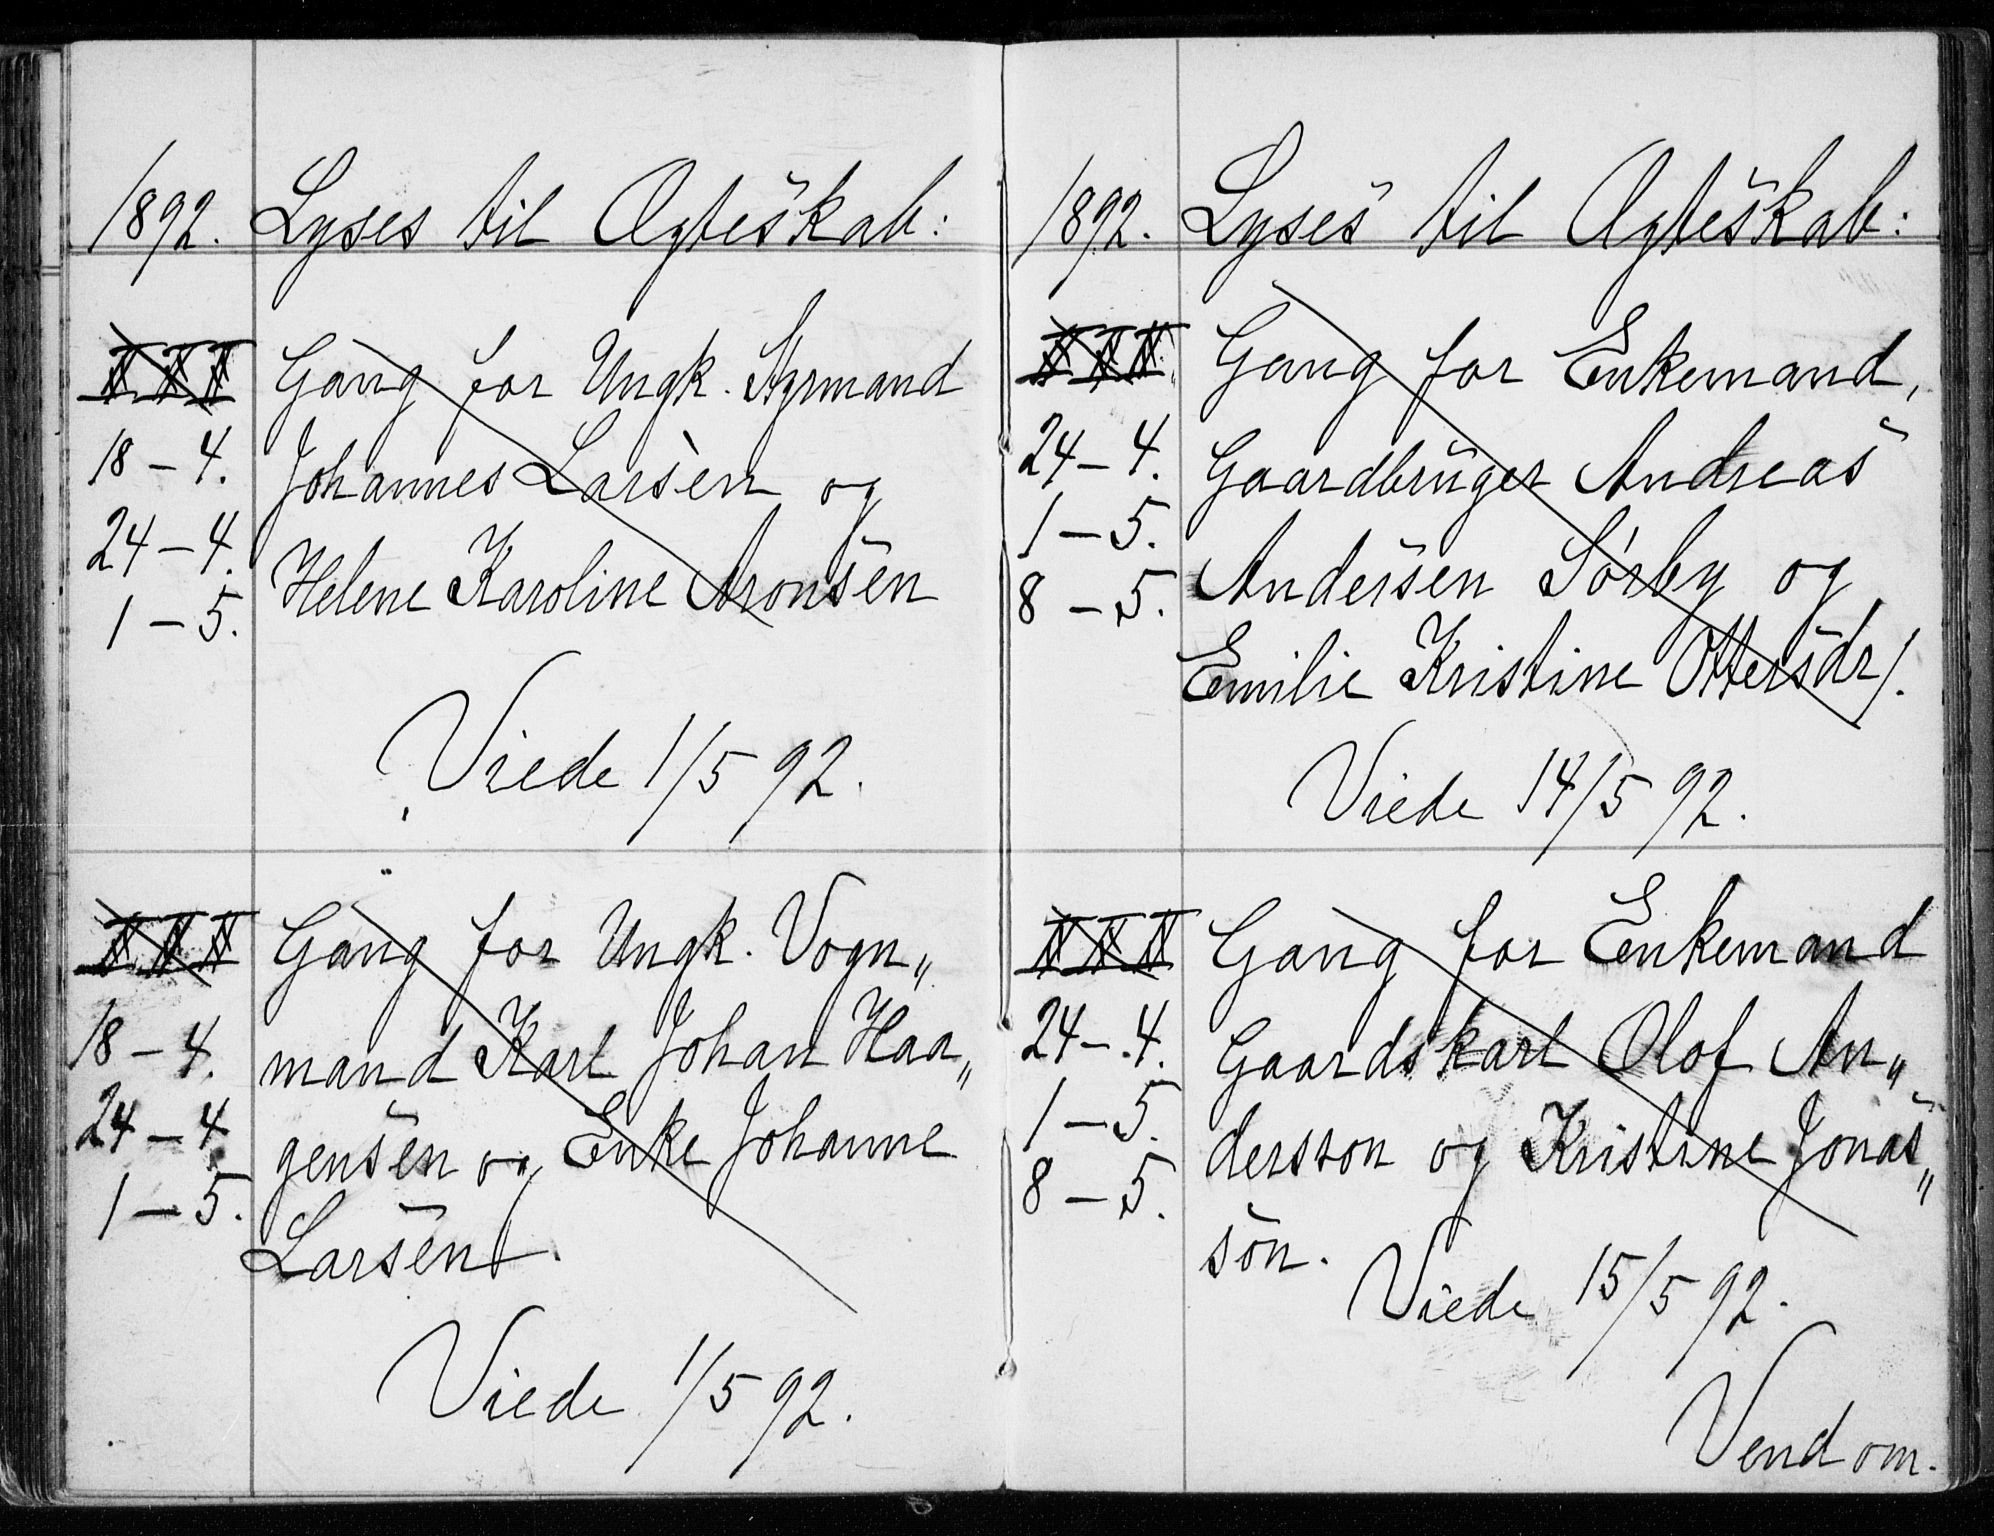 1892. Lyses til Ægteskab:
III Gang for Ungk. Styrmand
18 – 4. Johannes Larsen og
24 – 4. Helene Karoline Aronsen
1 – 5.
Viede 1/5 92.
III Gang for Ungk. Vogn„
18 – 4. mand Karl Johan Haa„
24 – 4 gensen og Enke Johanne
1 – 5. Larsen.
Viede 1/5 92.
1892. Lyses til Ægteskab:
III Gang for Enkemand,
24 – 4. Gaardbruger Andreas
1 – 5. Andersen Sörby og
8 – 5. Emilie Kristine Ottersdr/.
Viede 14/5 92.
III Gang for Enkemand
24 – 4. Gaardskarl Olof An„
1 – 5. dersson og Kristine Jonas„
8 – 5. son.
Viede 15/5 92.
Vend om.